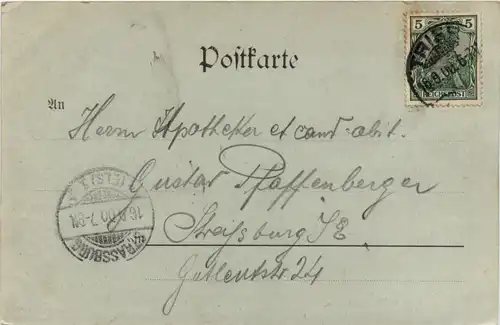 5 5
REICHSPOST
TRIER
Postkarte
An
Herrn Apotheker et cand. abit.
Gustav Pfaffenberger
Straßburg I E
Gutleutstr. 24
STRASSBURG
(ELS) 1
16.9.00.7-8N.